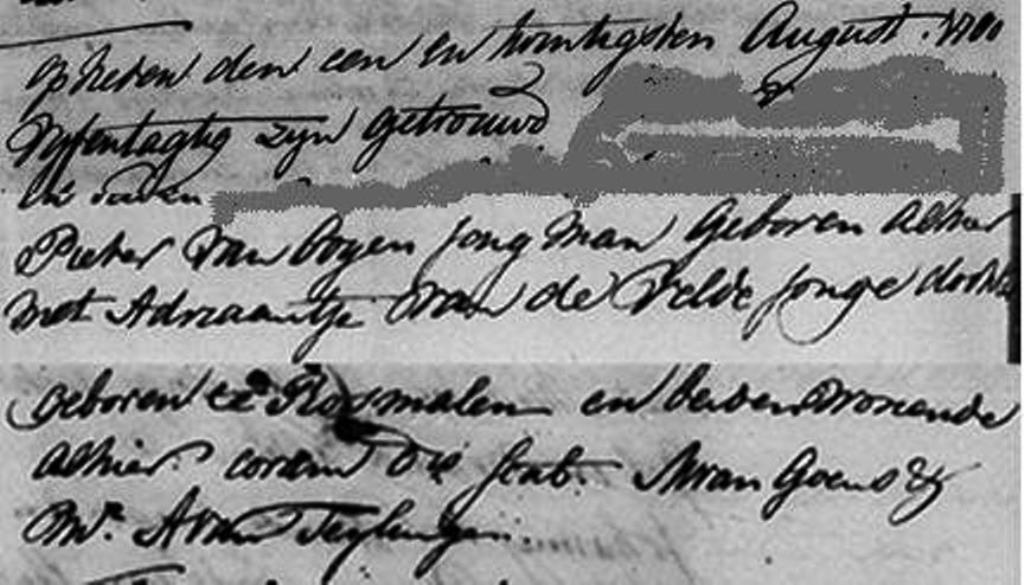 op heden den een en twintigsten August. 1700
Vyfentagtig zyn getrouwd
in
Pieter van bogen Jong man Geboren alhier
met Adriaantje van de Velde Jonge dochter
Geboren te Rosmalen en beiden wonende
alhier coram de Scab. van Goens &
Mr. A van Teylingen.